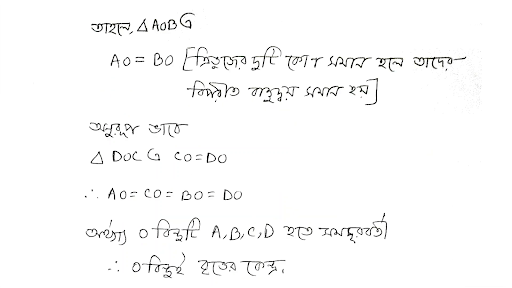 তাহলে, △AOB এ
AO = BO [ত্রিভুজের দুটি কোণ সমান হলে তাদের
বিপরীত বাহুদ্বয় সমান হয়]
অনুরূপ ভাবে
△ DOC এ CO = DO
∴ AO = CO = BO = DO
অর্থাৎ O বিন্দুটি A, B, C, D হতে সমদূরবর্তী
∴ O বিন্দুই বৃত্তের কেন্দ্র.